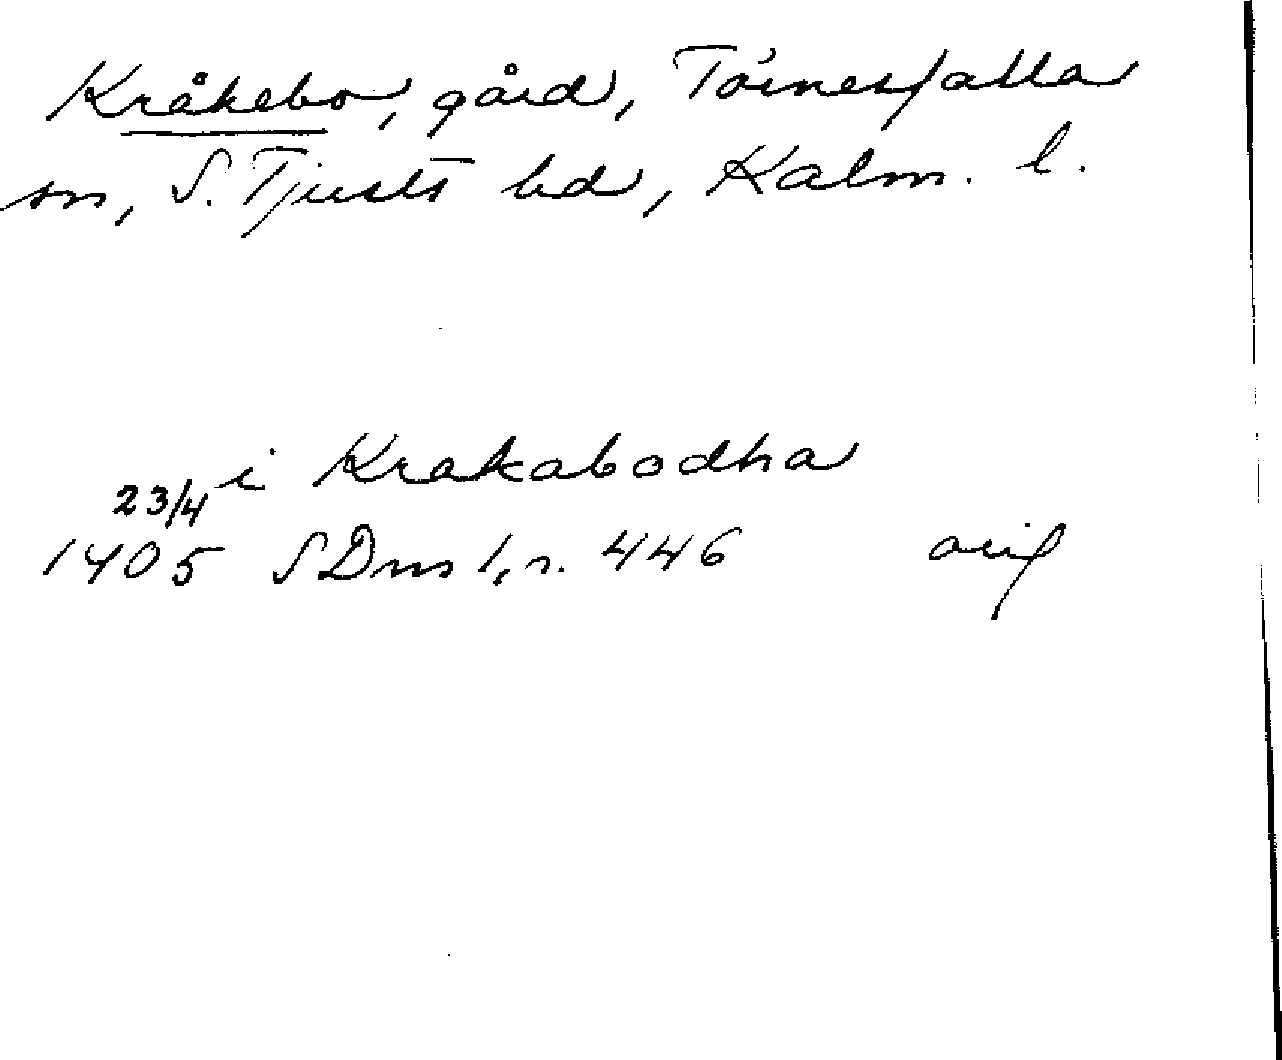 Kråkebo, gård, Törnesfalla
sn, S. Tjusts hd, Kalm. l.
i Krakabodha
23/4
1405 SDns 1, s. 446 orig